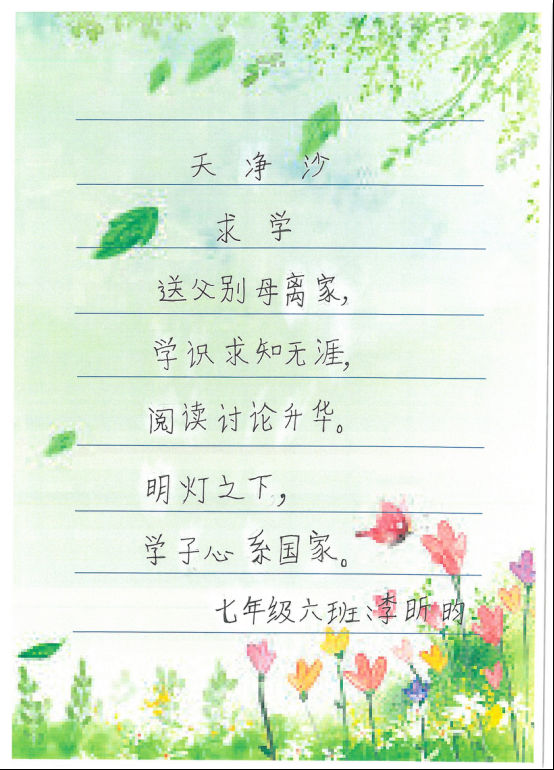 天净沙
求学
送父别母离家,
学识求知无涯,
阅读讨论升华。
明灯之下,
学子心系国家。
七年级六班:李昕昀